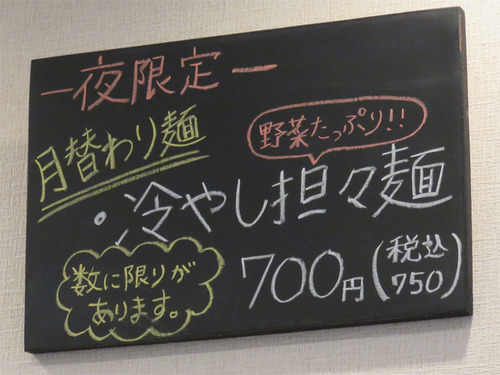 ー夜限定ー
月替わり麺
野菜たっぷり!!
・冷やし担々麺
数に限りが
あります。
700円(税込
750)